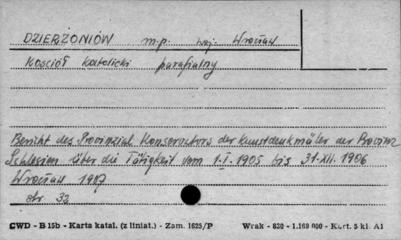 DZIERŻONIÓW m.p. woj. Wrocław
Kościół katolicki parafialny
Bericht des Provinzial Konservators der Kunstdenkmäler der Provinz
Schlesien über die Tätigkeit vom 1.I.1905 bis 31.XII.1906
Wrocław 1907
str 33
CWD - B 15b - Karta katal. (z liniat.) - Zam. 1625/P Wrak - 830 - 1.160 000 - Kart. 5 kl. A1